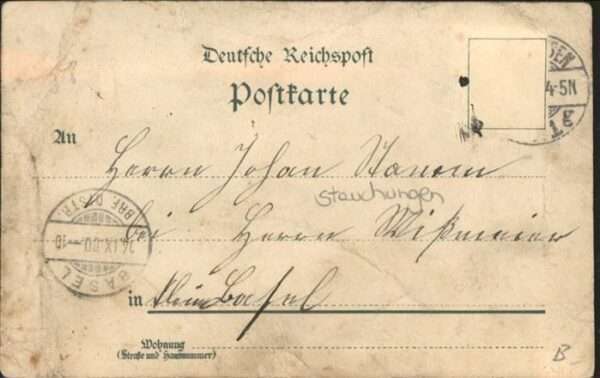 Deutsche Reichspost
Postkarte
SEN
4-5N
1 g
An
Herrn Johan Stamm
Stauchungen
BRF. DISTR.
24.IX.00.-10
bei Herrn Wißmeier
BASEL
in Klein Basel
Wohnung
(Straße und Hausnummer)
B-